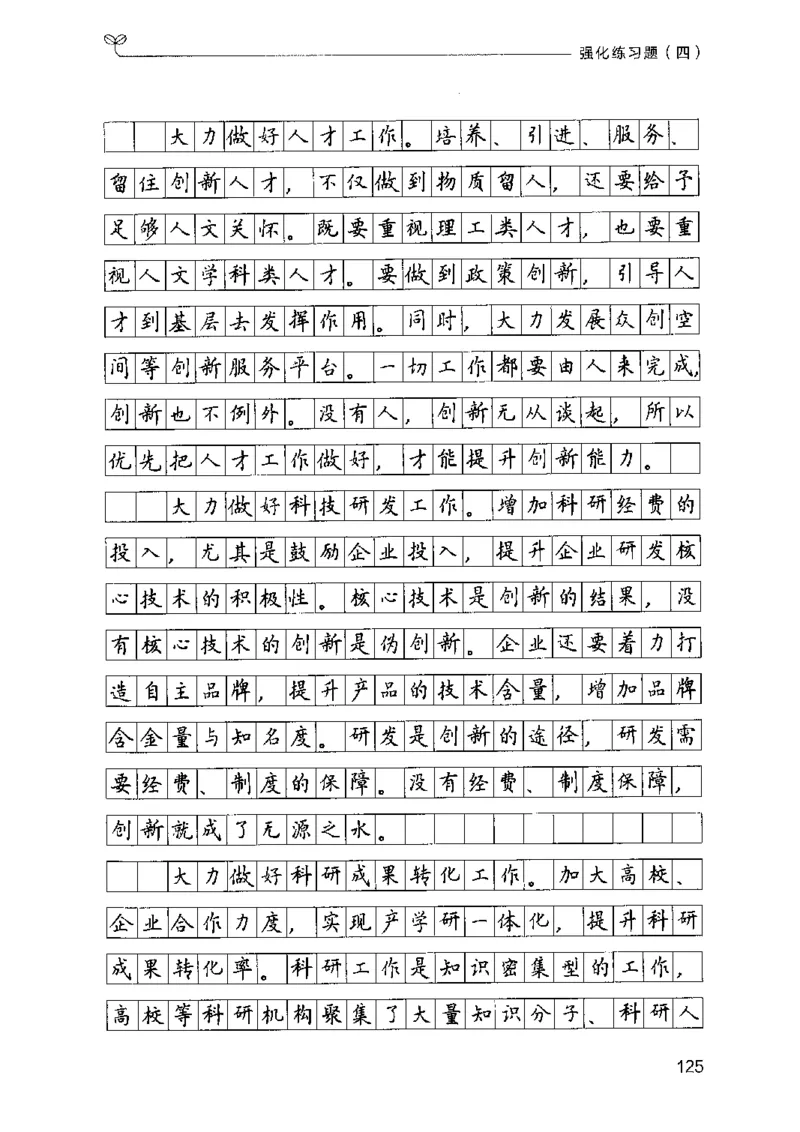 强化练习题（四）
大力做好人才工作。培养、引进、服务、
留住创新人才，不仅做到物质留人，还要给予
足够人文关怀。既要重视理工类人才，也要重
视人文学科类人才。要做到政策创新，引导人
才到基层去发挥作用。同时，大力发展众创空
间等创新服务平台。一切工作都要由人来完成，
创新也不例外。没有人，创新无从谈起，所以
优先把人才工作做好，才能提升创新能力。
大力做好科技研发工作。增加科研经费的
投入，尤其是鼓励企业投入，提升企业研发核
心技术的积极性。核心技术是创新的结果，没
有核心技术的创新是伪创新。企业还要着力打
造自主品牌，提升产品的技术含量，增加品牌
含金量与知名度。研发是创新的途径，研发需
要经费、制度的保障。没有经费、制度保障，
创新就成了无源之水。
大力做好科研成果转化工作。加大高校、
企业合作力度，实现产学研一体化，提升科研
成果转化率。科研工作是知识密集型的工作，
高校等科研机构聚集了大量知识分子、科研人
125